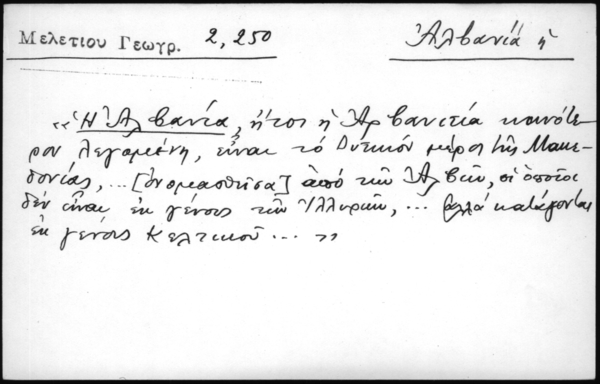 Μελετίου Γεωγρ. 2, 250
Ἀλβανία ἡ
«Ἡ Ἀλβανία, ἤτοι ἡ Ἀρβανιτία κοινότε-
ρον λεγομένη, εἶναι τὸ Δυτικὸν μέρος τῆς Μακε-
δονίας, ... [ὀνομασθεῖσα] ἀπὸ τῶν Ἀλβῶν, οἱ ὁποῖοι
δὲν εἶναι ἐκ γένους τῶν Ἰλλυρῶν, ... ἀλλὰ κατάγονται
ἐκ γένους Κελτικοῦ ... »